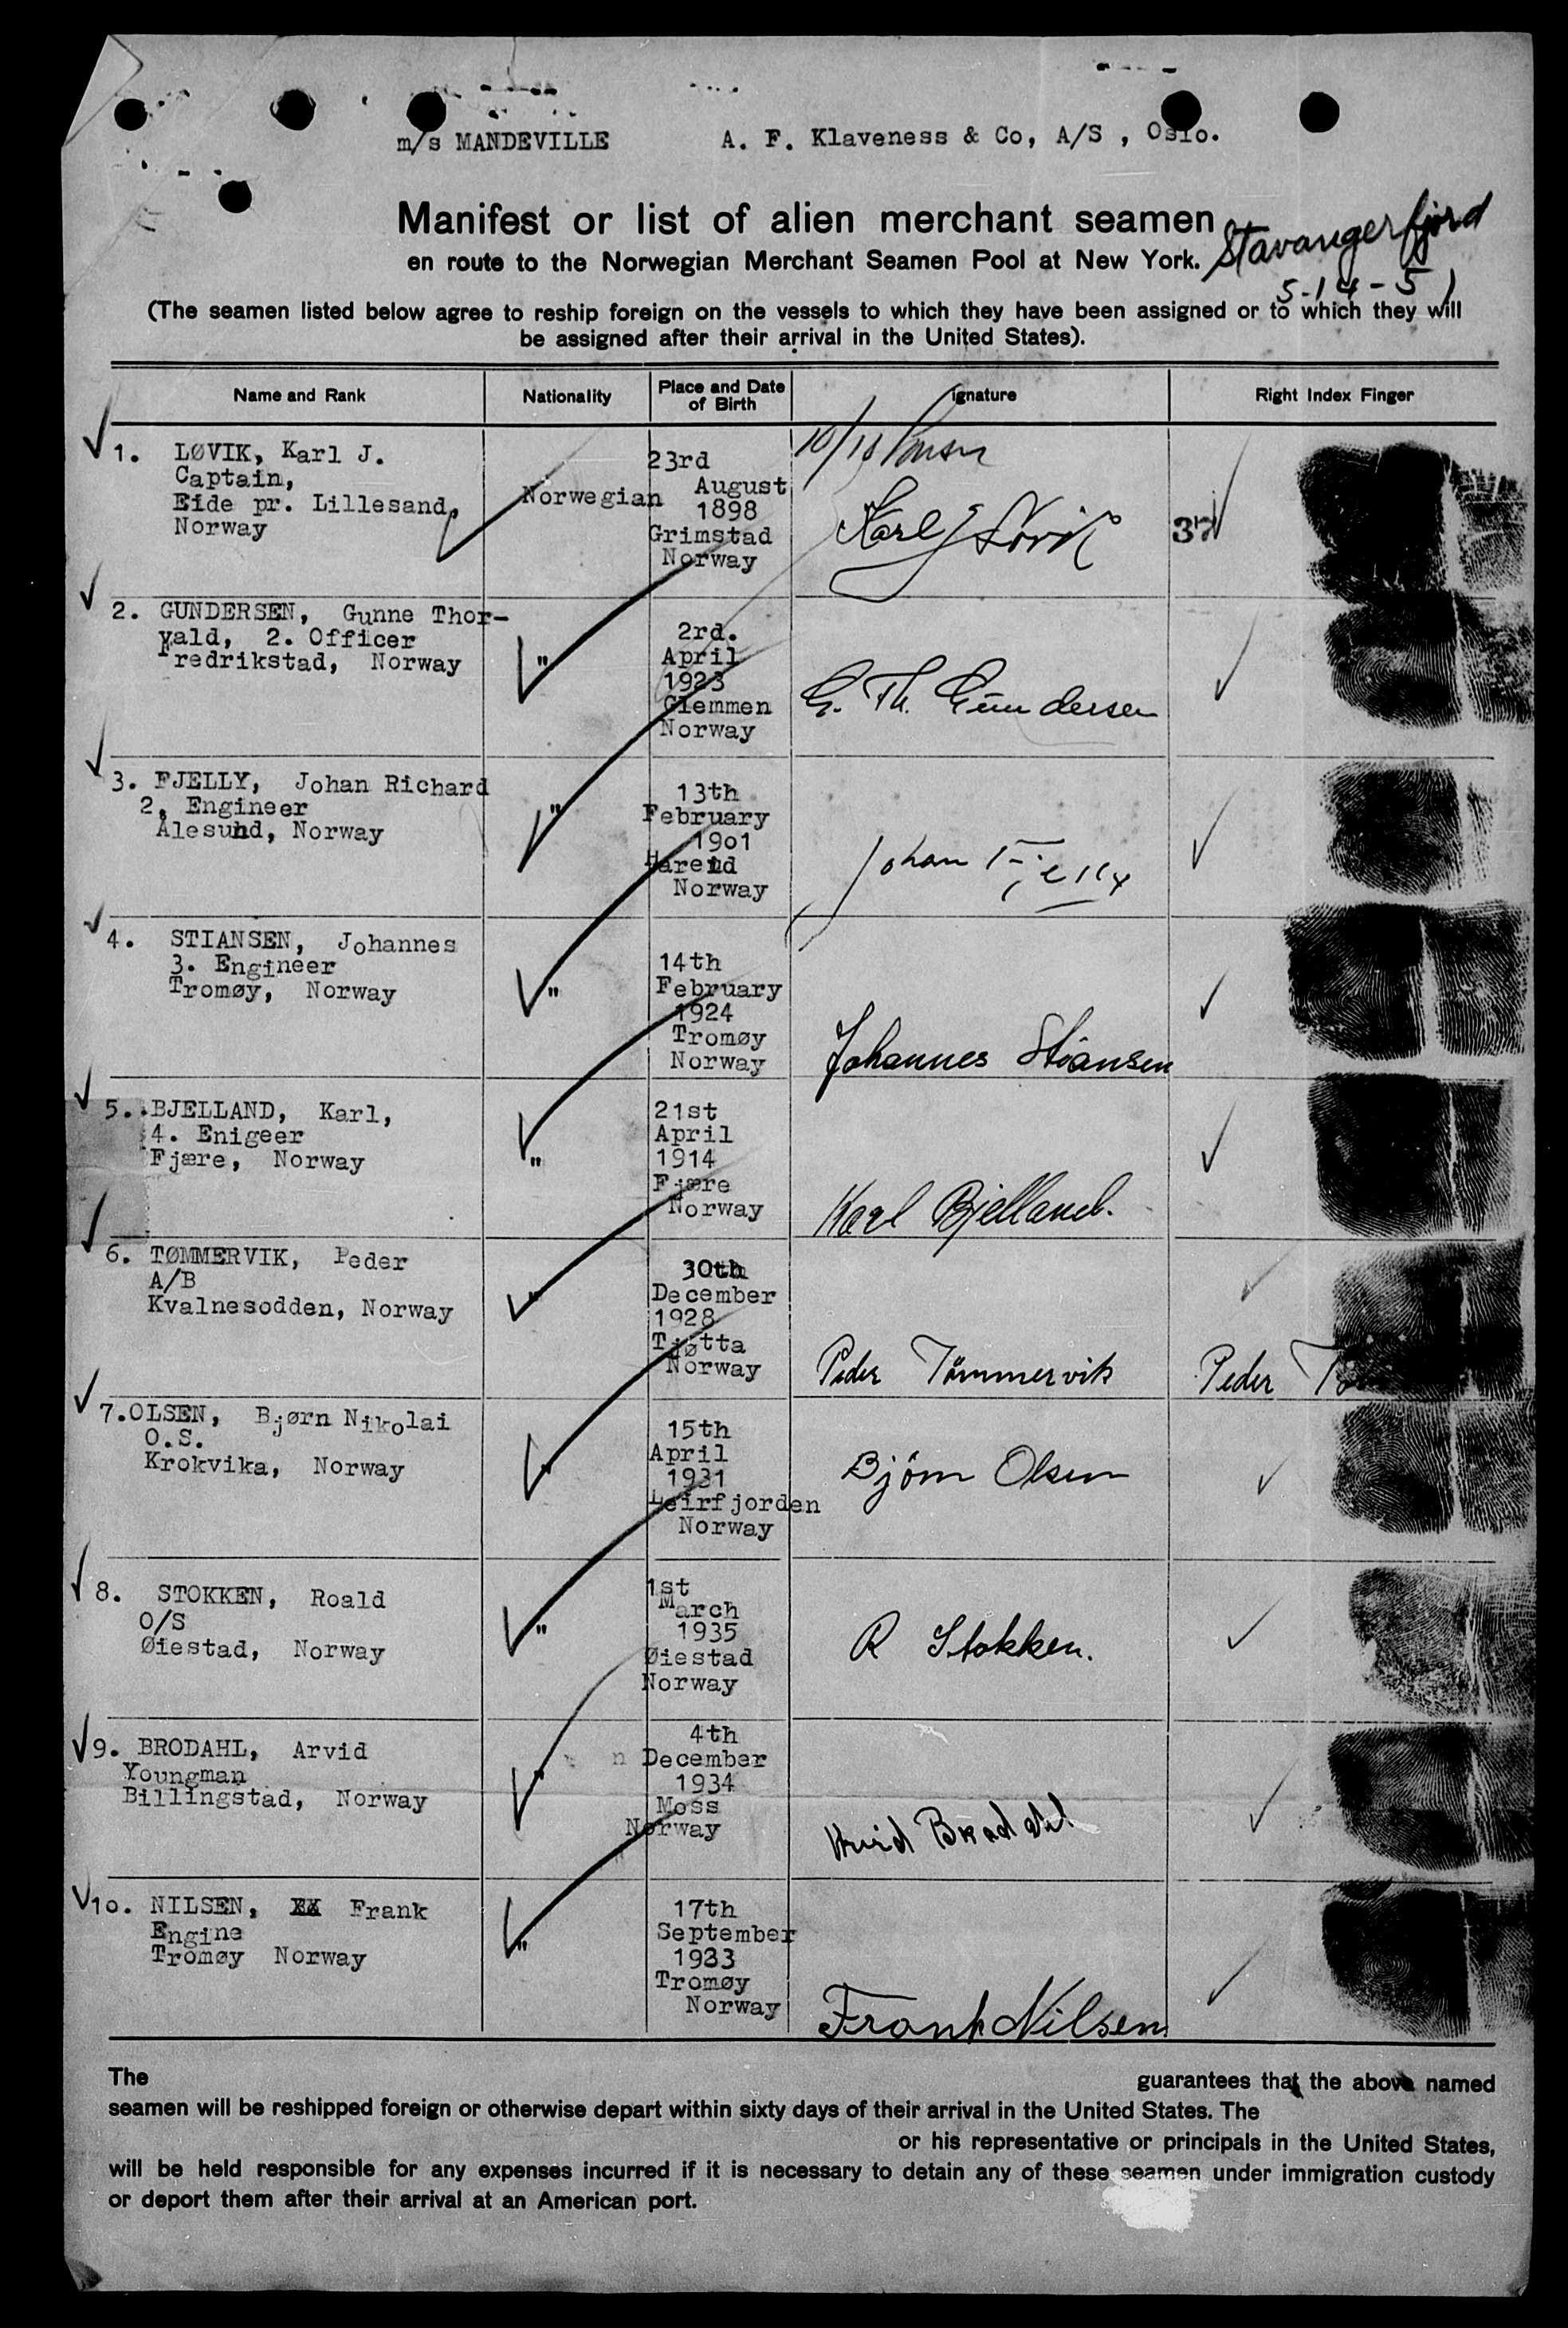 m/s MANDEVILLE A. F. Klaveness & Co, A/S , Oslo.
Manifest or list of alien merchant seamen
en route to the Norwegian Merchant Seamen Pool at New York.
Stavangerfjord
5-14-51
(The seamen listed below agree to reship foreign on the vessels to which they have been assigned or to which they will
be assigned after their arrival in the United States).
Name and Rank Nationality Place and Date of Birth ignature Right Index Finger
1. LØVIK, Karl J.
Captain,
Eide pr. Lillesand,
Norway
Norwegian
23rd
August
1898
Grimstad
Norway
10/10
Karl J Løvik
37
2. GUNDERSEN, Gunne Thor-
vald, 2. Officer
Fredrikstad, Norway
"
2rd.
April
1923
Glemmen
Norway
G. Th. Gundersen
3. FJELLY, Johan Richard
2. Engineer
Ålesund, Norway
"
13th
February
19o1
Hareid
Norway
Johan Fjelly
4. STIANSEN, Johannes
3. Engineer
Tromøy, Norway
"
14th
February
1924
Tromøy
Norway
Johannes Stiansen
5. BJELLAND, Karl,
4. Enigeer
Fjære, Norway
"
21st
April
1914
Fjære
Norway
Karl Bjelland.
6. TØMMERVIK, Peder
A/B
Kvalnesodden, Norway
"
30th
December
1928
Tjøtta
Norway
Peder Tömmervik
Peder
7.OLSEN, Bjørn Nikolai
O.S.
Krokvika, Norway
"
15th
April
1931
Leirfjorden
Norway
Bjöm Olsen
8. STOKKEN, Roald
O/S
Øiestad, Norway
"
1st
March
1935
Øiestad
Norway
R Stokken.
9. BRODAHL, Arvid
Youngman
Billingstad, Norway
"
n
4th
December
1934
Moss
Norway
Arvid Brodahl
1o. NILSEN, Frank
Engine
Tromøy Norway
"
17th
September
1933
Tromøy
Norway
Frank Nilsen
The guarantees that the above named
seamen will be reshipped foreign or otherwise depart within sixty days of their arrival in the United States. The
or his representative or principals in the United States,
will be held responsible for any expenses incurred if it is necessary to detain any of these seamen under immigration custody
or deport them after their arrival at an American port.